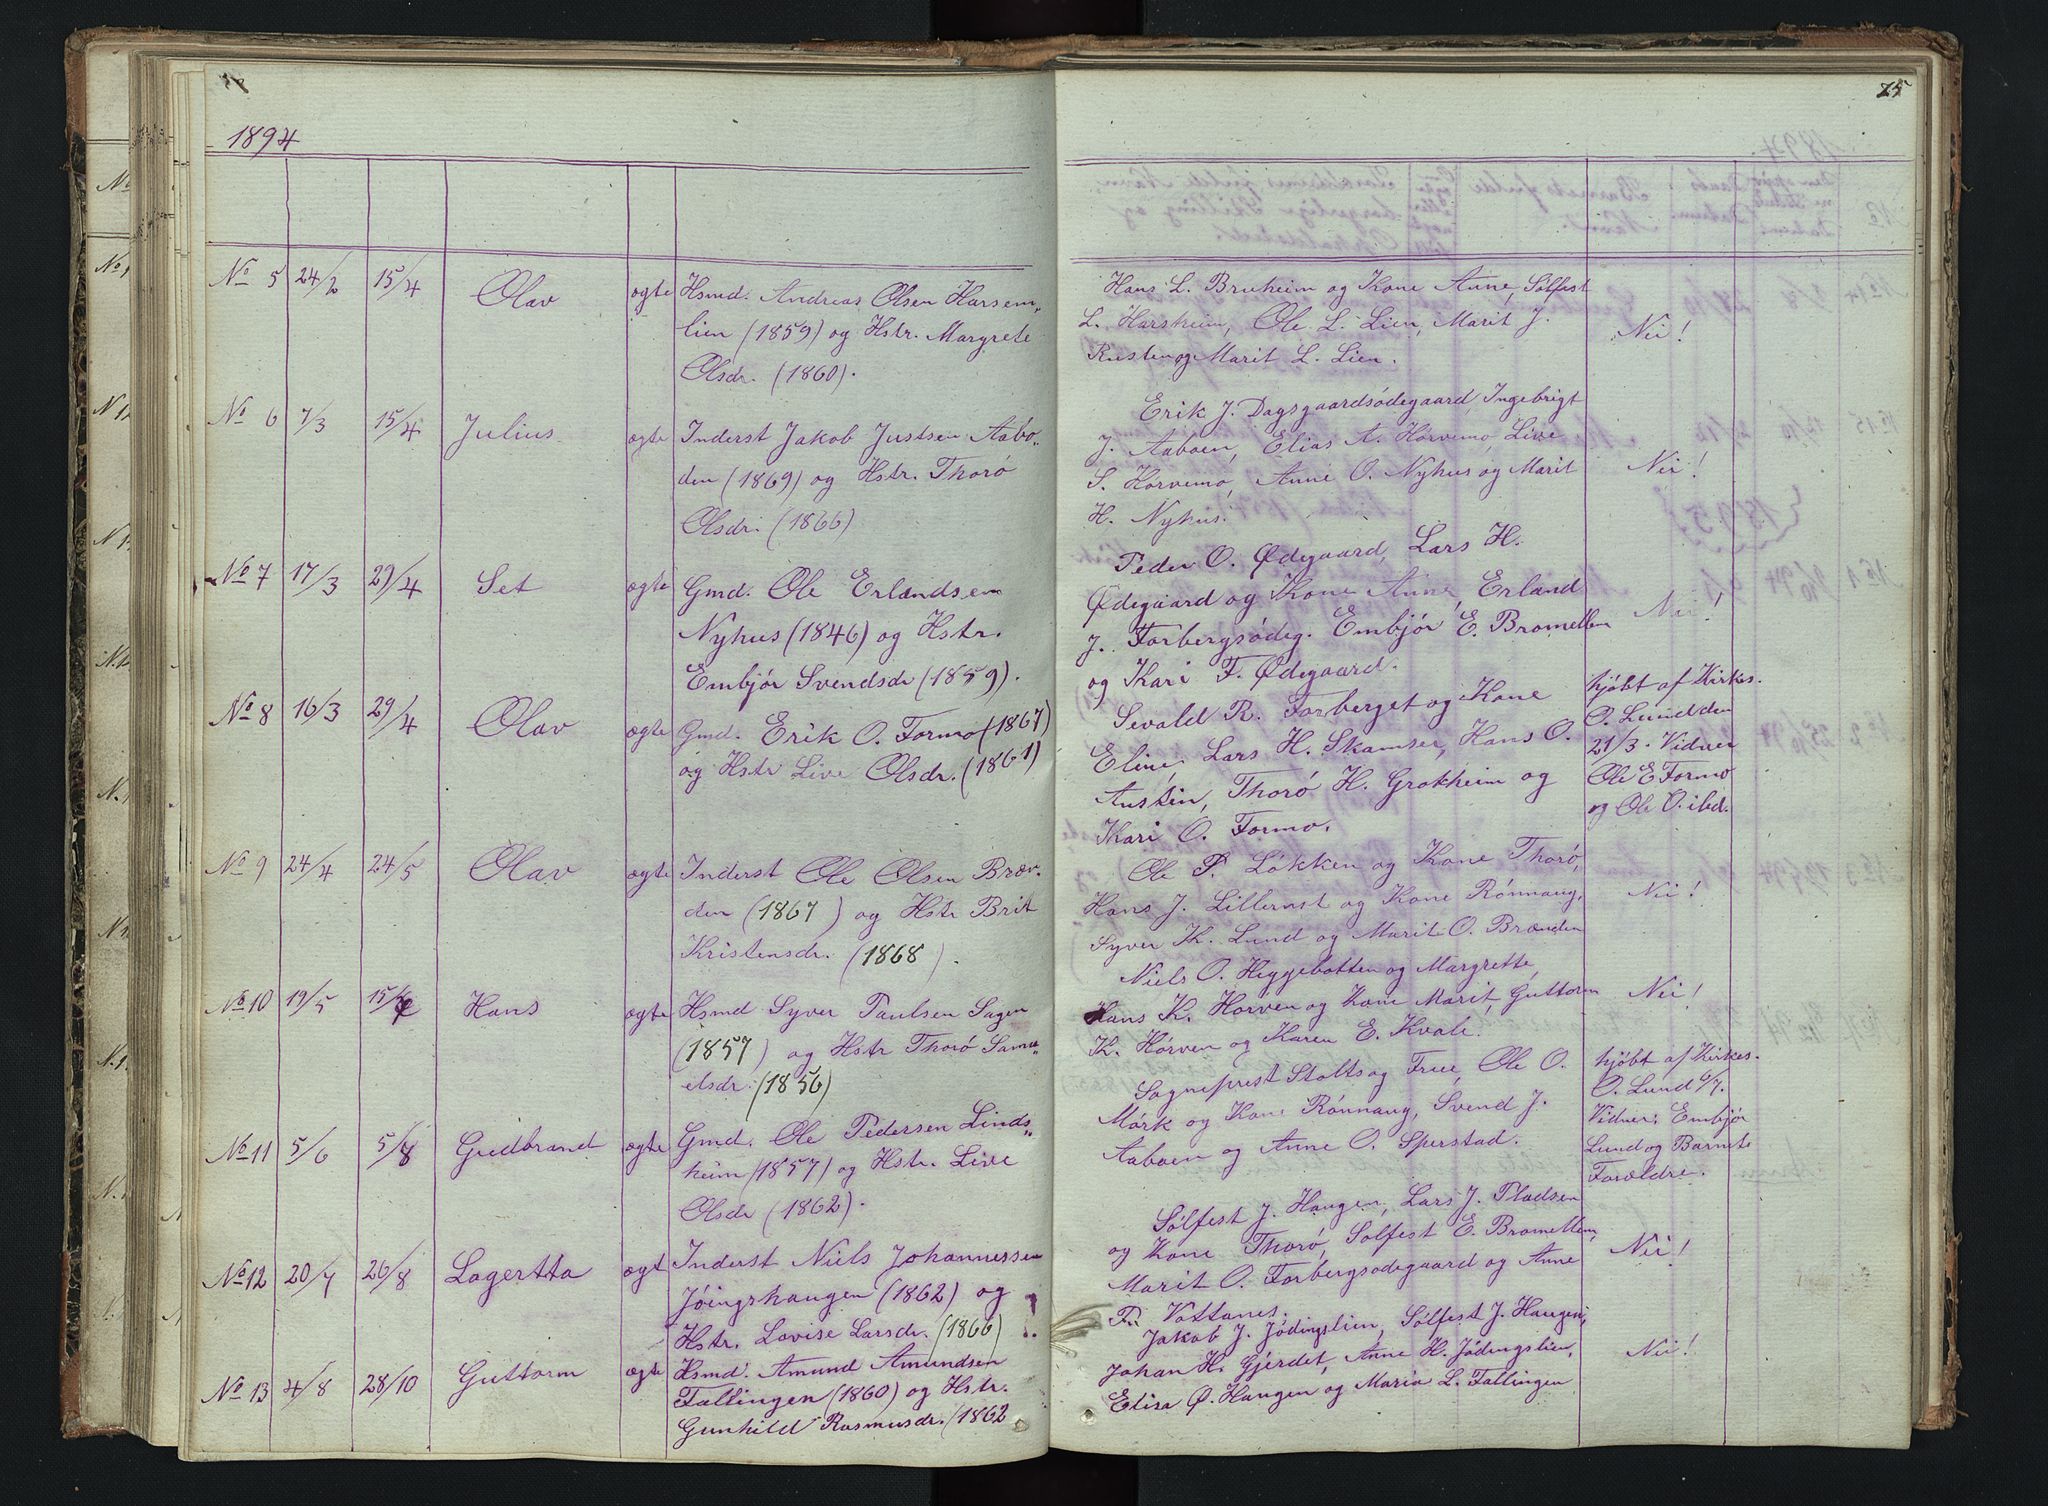 1894
No 5 24/2 15/4 Olav ægte Hsmd. Andreas Olsen Harsem„
lien (1859) og Hstr. Margrete
Olsdr. (1860).
No 6 7/3 15/4 Julius ægte Inderst Jakob Justsen Aabo„
den (1869) og Hstr. Thorö
Olsdr. (1866)
No 7 17/3 29/4 Set ægte Gmd. Ole Erlandsen
Nyhus (1846) og Hstr.
Embjör Svendsdr (1859).
No 8 16/3 29/4 Olav ægte Gmd. Erik O. Formo (1867)
og Hstr Live Olsdr. (1861)
No 9 24/4 24/5 Olav ægte Inderst Ole Olsen Bræn-
den (1867) og Hstr Brit
Kristensdr. (1868).
No 10 19/5 Hans ægte Hsmd Syver Paulsen Sagen
(1857) og Hstr Thorö Samu„
elsdr. (1856)
No 11 5/6 5/8 Gudbrand ægte Gmd. Ole Pedersen Linds„
heim (1857) og Hstr. Live
Olsdr (1862).
No 12 20/7 26/8 Lagertta ægt Inderst Niels Johannessen
Jöingshaugen (1862) og
Hstr. Lovise Larsdr. (1866) !.
No 13 4/8 28/10 Guttorm ægte Hsmd. Amund Amundsen
Fallingen (1860) og Hstr.
Gunhild Rasmusdr. (1862
75
Hans L. Bruheim og Kone Anne, Sölfest
L. Harsheim, Ole L. Lien, Marit J. Nei!
Rusten og Marit L. Lien.
Erik J. Dagsgaardsödegaard, Ingebrigt
J. Aaboen, Elias A. Horvemo, Live
S. Korvemo, Anne O. Nyhus og Marit Nei!
H. Nyhus.
Peder O. Ødegaard, Lars H.
Ødegaard og Kone Anne, Erland Nei!
J. Forbergsödeg. Embjör E. Bromellen
og Kari F. Ødegaard.
Sevald R. Forberget og Kone
Eline, Lars H. Skamser, Hans O.
Austin, Thorö H. Grokheim og
Kari O. Formo.
hjöbt af Kirkes.
O. Lund den
21/3. Vidner
Ole E Formo
og Ole O. ibd.
Ole P. Lökken og Kone Thorö,
Hans J. Lillernst og Kone Rönnaug, Nei!
Syver K. Lund og Marit O. Brænden
Niels O. Heggebotten og Margrette,
Hans K. Horven og Kone Marit, Guttorm Nei!
K. Hörven og Karen E. Kvale.
Sogneprest Stolts og Frue, Ole O.
Mörk og Kone Rönnaug, Svend J.
Aaboen og Anne O. Sperstad.
hjöbt af Kirkes.
O. Lund 6/7.
Vidner: Embjör
Lund og Barnets
Forældre.
Sölfest J. Haugen, Lars J. Pladsen
og Kone Thorö, Solfest E. Bromellen, Nei!
Marit O. Forbergsodegaard og Anne
F. Vottanes.
Jakob J. Jödingslien, Sölfest J. Haugen,
Johan H. Gjerdet, Anne H. Jödingslien, Nei!
Elisa Ø. Haugen og Maria L. Fallingen